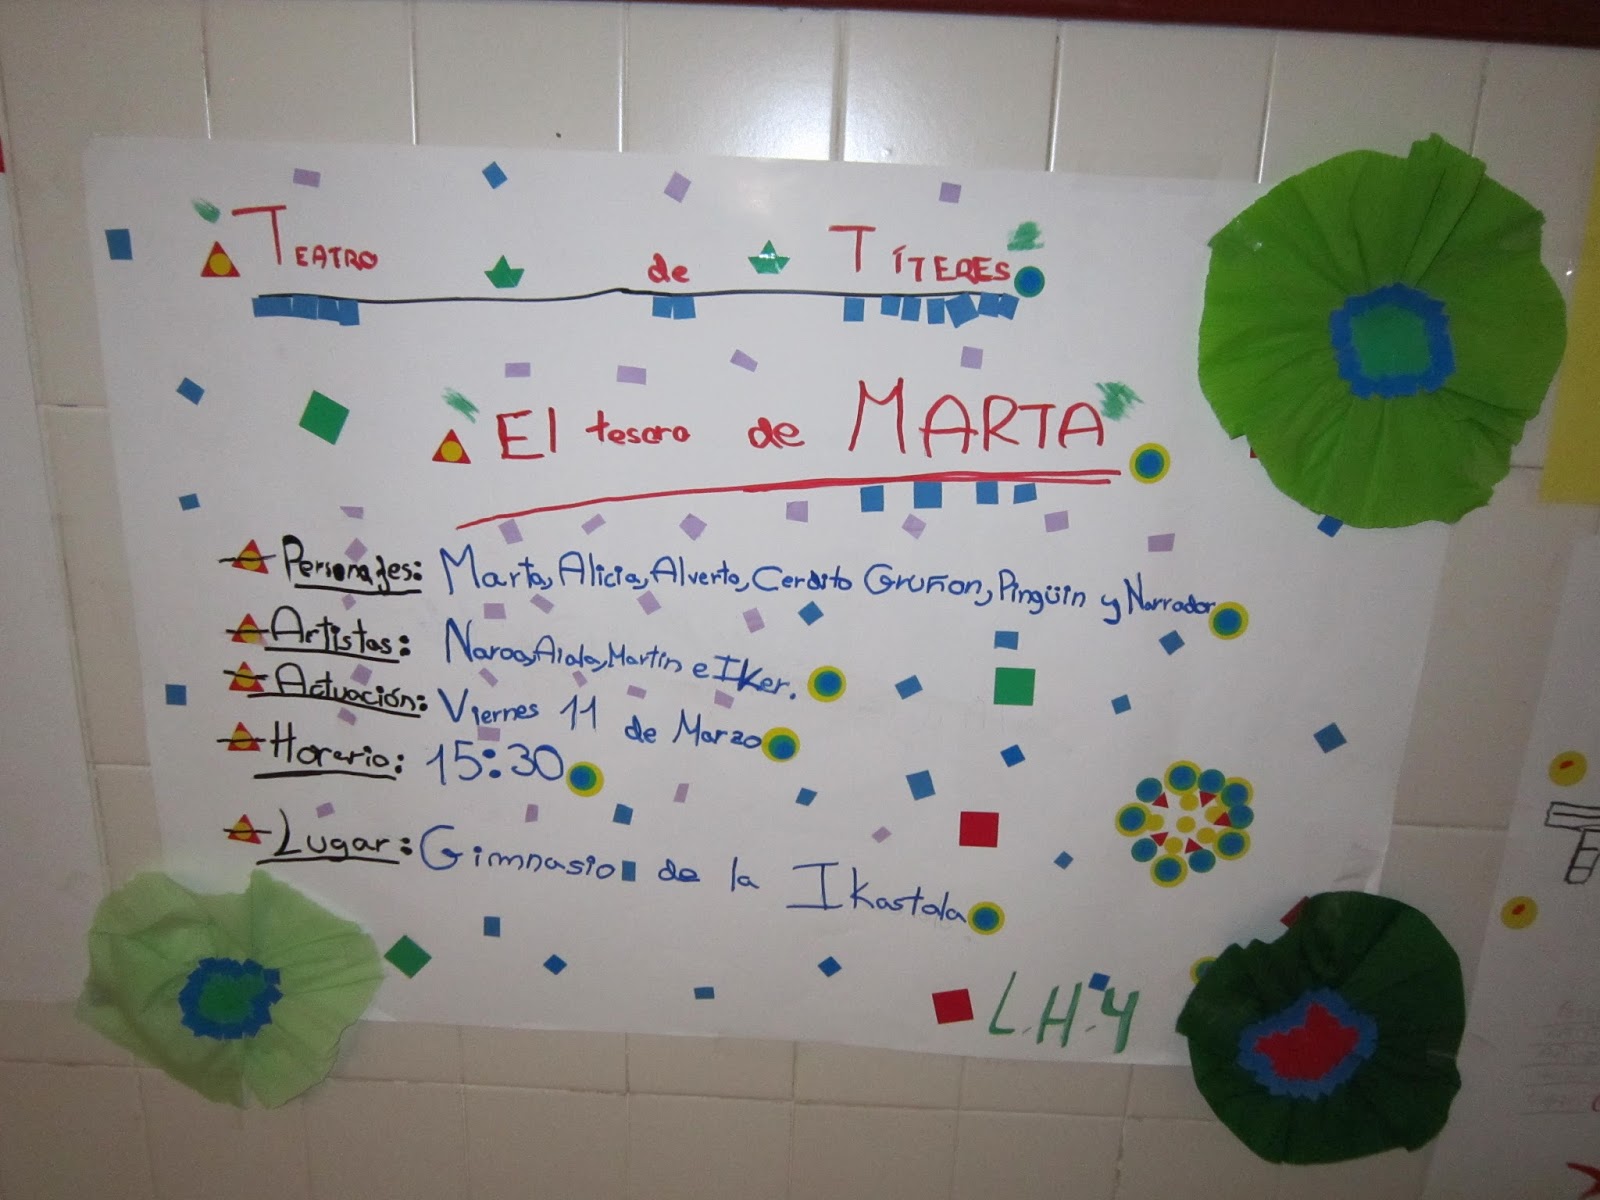 TEATRO de TÍTERES
El tesoro de MARTA
Personajes: Marta, Alicia, Alverto, Cerdito Gruñon, Pingüin y Narrador
Artistas: Naroa, Aiala, Martin e IKer.
Actuación: Viernes 11 de Marzo
Horario: 15:30
Lugar: Gimnasio de la Ikastola
L.H.4